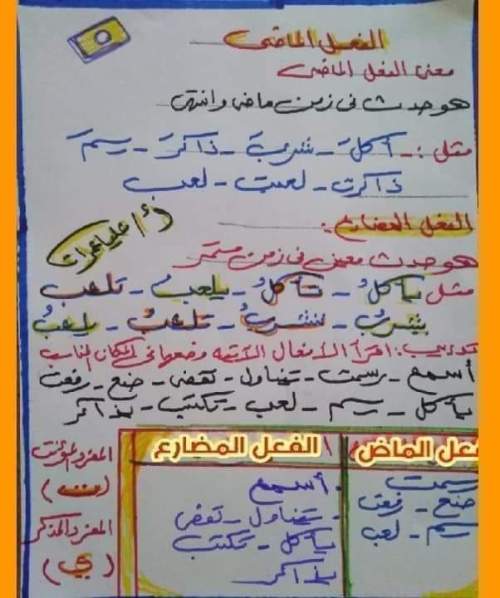 الفعل الماضى
معنى الفعل الماضى
هو حدث فى زمن ماض وانتهى
مثل :- أكلَ - شربَ - ذاكرَ - رسمَ
ذاكرت - لعبت - لعب
أ/ علياء
الفعل المضارع :
هو حدث معين فى زمن مستمر
مثل يأكلُ - تأكلُ - يلعبُ - تلعب
يشربُ - تشربُ - تلعبُ - يلعبُ
تدريب : اقرأ الأفعال الآتية وضعها فى المكان المناسب
أسمع - رسمت - تتناول - تقضى - صنع - رفعت
يأكل - رسم - لعب - تكتب - يذاكر
فعل الماض
رسمت
صنع - رفعت
رسم - لعب
الفعل المضارع
أسمع
تتناول - تقضى
يأكل - تكتب
يذاكر
المفرد المؤنث
المفرد المذكر